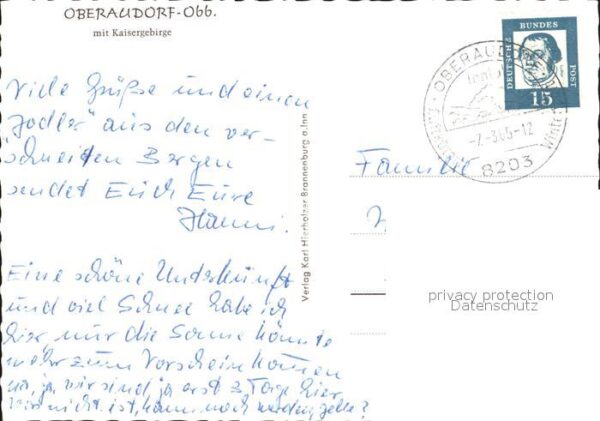 OBERAUDORF-Obb.
mit Kaisergebirge
Viele Grüße und einen
Jodler" aus den ver-
schneiten Bergen
sendet Euch Eure
Hanni.
Eine schöne Unterkunft
und viel Schnee habe ich
hier, nur die Sonne könnte
mehr zum Vorschein kommen
na, ja, wir sind ja erst 3 Tage hier,
was nicht ist, kann noch werden, gelle?
Verlag Karl Hierholzer Brannenburg a. Inn.
DEUTSCHE
BUNDES
POST
15
OBERAUDORF
-7.-3.65-12
8203
Familie
privacy protection
Datenschutz